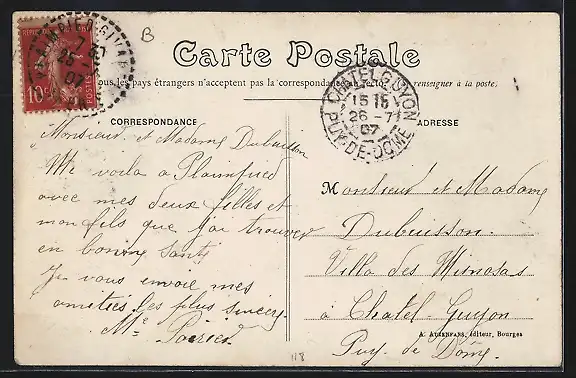 B
Carte Postale
Tous les pays étrangers n'acceptent pas la correspondance au recto. renseigner à la poste.
CORRESPONDANCE
ADRESSE
10
26
07
CHATELGUYON
15 15
26 -7
07
PUY-DE-DOME
Monsieur et Madame Dubuisson
Me voilà à Plaimpied
avec mes deux filles et
mon fils que j'ai trouver
en bonne santé
Je vous envoie mes
amitiés les plus sincères
Me Poirier
Monsieur et Madame
Dubuisson.
Villa des Mimosas
à Chatel-Guyon
Puy. de Dôme.
A. AUXENFANS, éditeur, Bourges
118